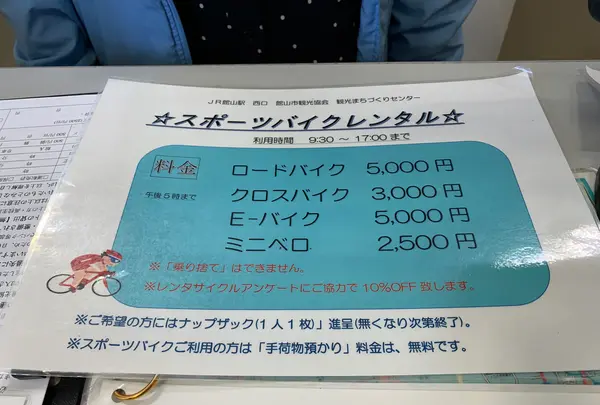 JR館山駅 西口 館山市観光協会 観光まちづくりセンター
☆スポーツバイクレンタル☆
利用時間 9:30 ~ 17:00まで
料金
午後5時まで
ロードバイク 5,000円
クロスバイク 3,000円
E-バイク 5,000円
ミニベロ 2,500円
※「乗り捨て」はできません。
※レンタサイクルアンケートにご協力で10%OFF致します。
※ご希望の方にはナップザック(1人1枚)」進呈(無くなり次第終了)。
※スポーツバイクご利用の方は「手荷物預かり」料金は、無料です。